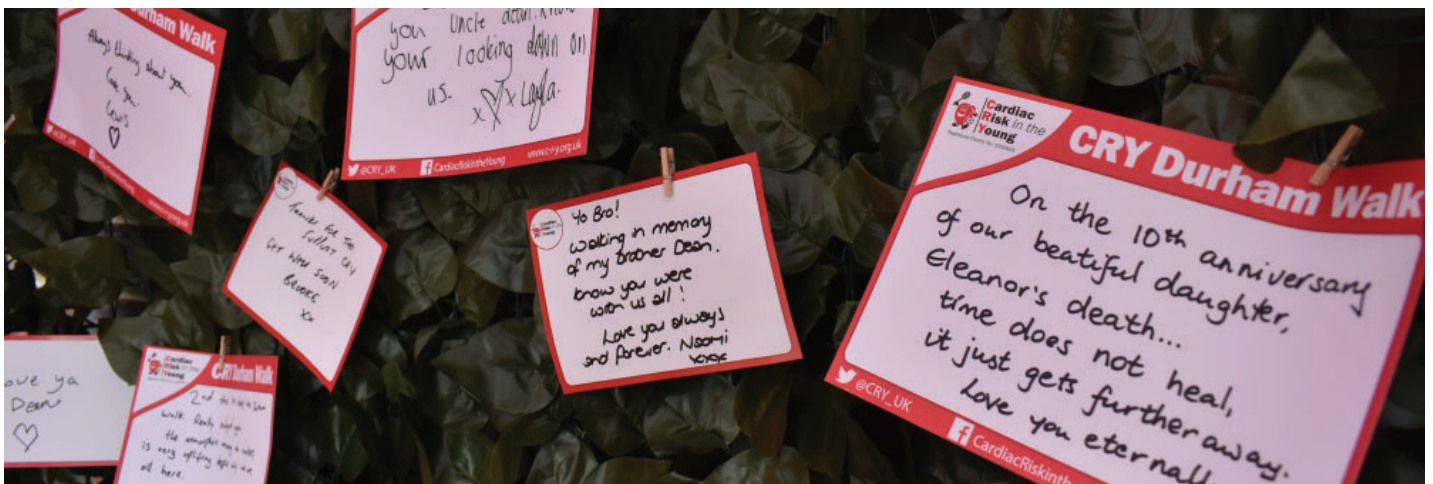 Durham Walk
Always thinking about you.
Love you.
Lewis
@CRY_UK
www.c-r-y.org.uk
you uncle dean. know
your looking down on
us.
x x Layla.
@CRY_UK CardiacRiskintheYoung www.c-r-y.org.uk
Thanks for the
support CRY
Get well soon
Brooke
xx
Yo Bro!
Walking in memory
of my brother Dean.
know you were
with us all!
Love you always
and forever. Naomi
xoxox
Cardiac
Risk in the
Young
CRY Durham Walk
On the 10th anniversary
of our beatiful daughter,
Eleanor's death...
time does not heal,
it just gets further away.
Love you eternall
@CRY_UK
CardiacRiskinth
ove ya
Dean
Cardiac
Risk in the
Young
CRY Durham Walk
2nd
walk Really
the atmosphere
is very uplifting
all here.